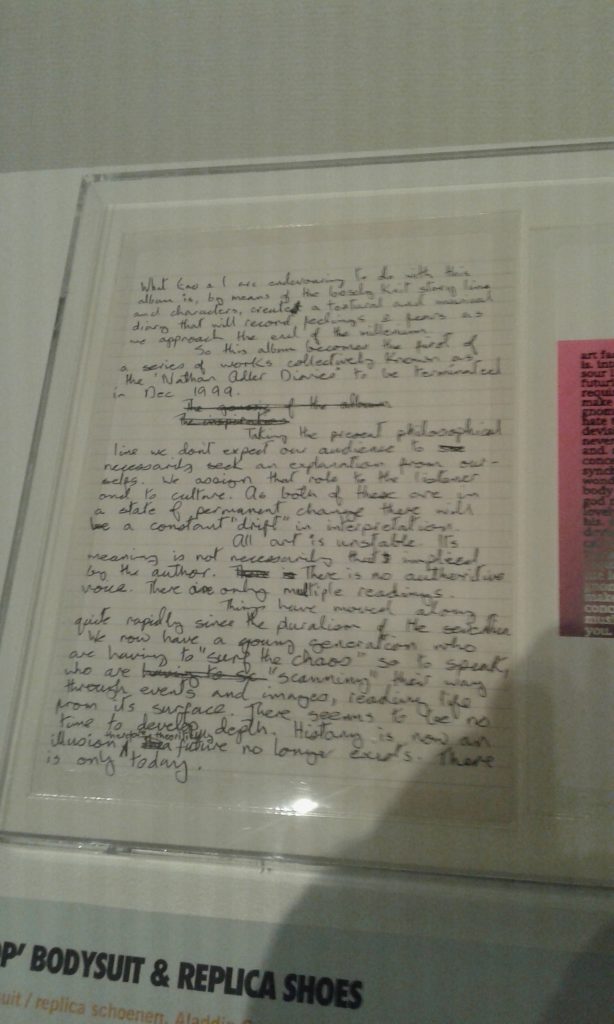 What Eno & I are endeavouring to do with this
album is, by means of the loosely knit story line
and characters, create a textural and musical
diary that will record feelings & fears as
we approach the end of the millenium.
So this album becomes the first of
a series of works collectively known as
the 'Nathan Adler Diaries' to be terminated
in Dec 1999.
The genesis of the album
The inspiration
Taking the present philosophical
line we dont expect our audience to
necessarily seek an explanation from our-
selves. We assign that role to the listener
and to culture. As both of these are in
a state of permanent change there will
be a constant "drift" in interpretation.
All art is unstable. Its
meaning is not necessarily that implied
by the author. There is There is no authoritive
voice. There are only multiple readings.
Things have moved along
quite rapidly since the pluralism of the seventies
We now have a young generation who
are having to "surf the chaos" so to speak,
who are having to "scanning" their way
through events and images, reading life
from its surface. There seems to be no
time to develop depth. History is now an
illusion, therefore a future no longer exists. There
is only "today.
art fa
is. int
sour
futur
requi
make
gnos
hate
devis
never
and
conce
synch
wond
body
god
love
his
OP' BODYSUIT & REPLICA SHOES
suit / replica schoenen, Aladdin